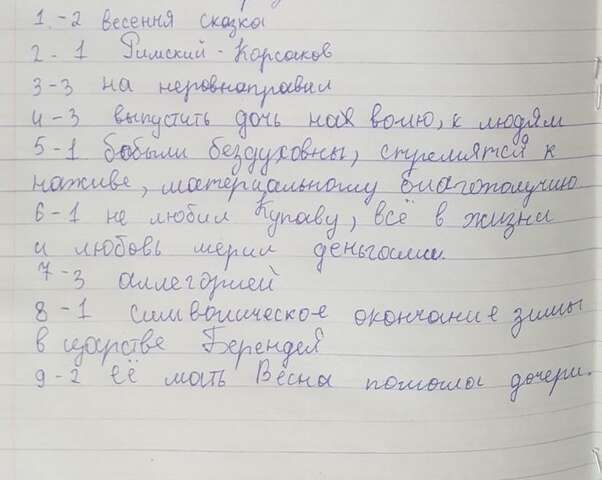 1.-2 весення сказка
2 - 1 Римский - Корсаков
3-3 на неровнаправил
4-3 выпустить дочь ная волю, к людям
5-1 бобыли бездуховны, стремятся к
наживе, материальному благополучию
6-1 не любил Купаву, всё в жизни
и любовь мерил деньгами.
7-3 аллегорией
8-1 символическое окончание зимы
в царстве Берендея
9-2 её мать Весна помогла дочери.